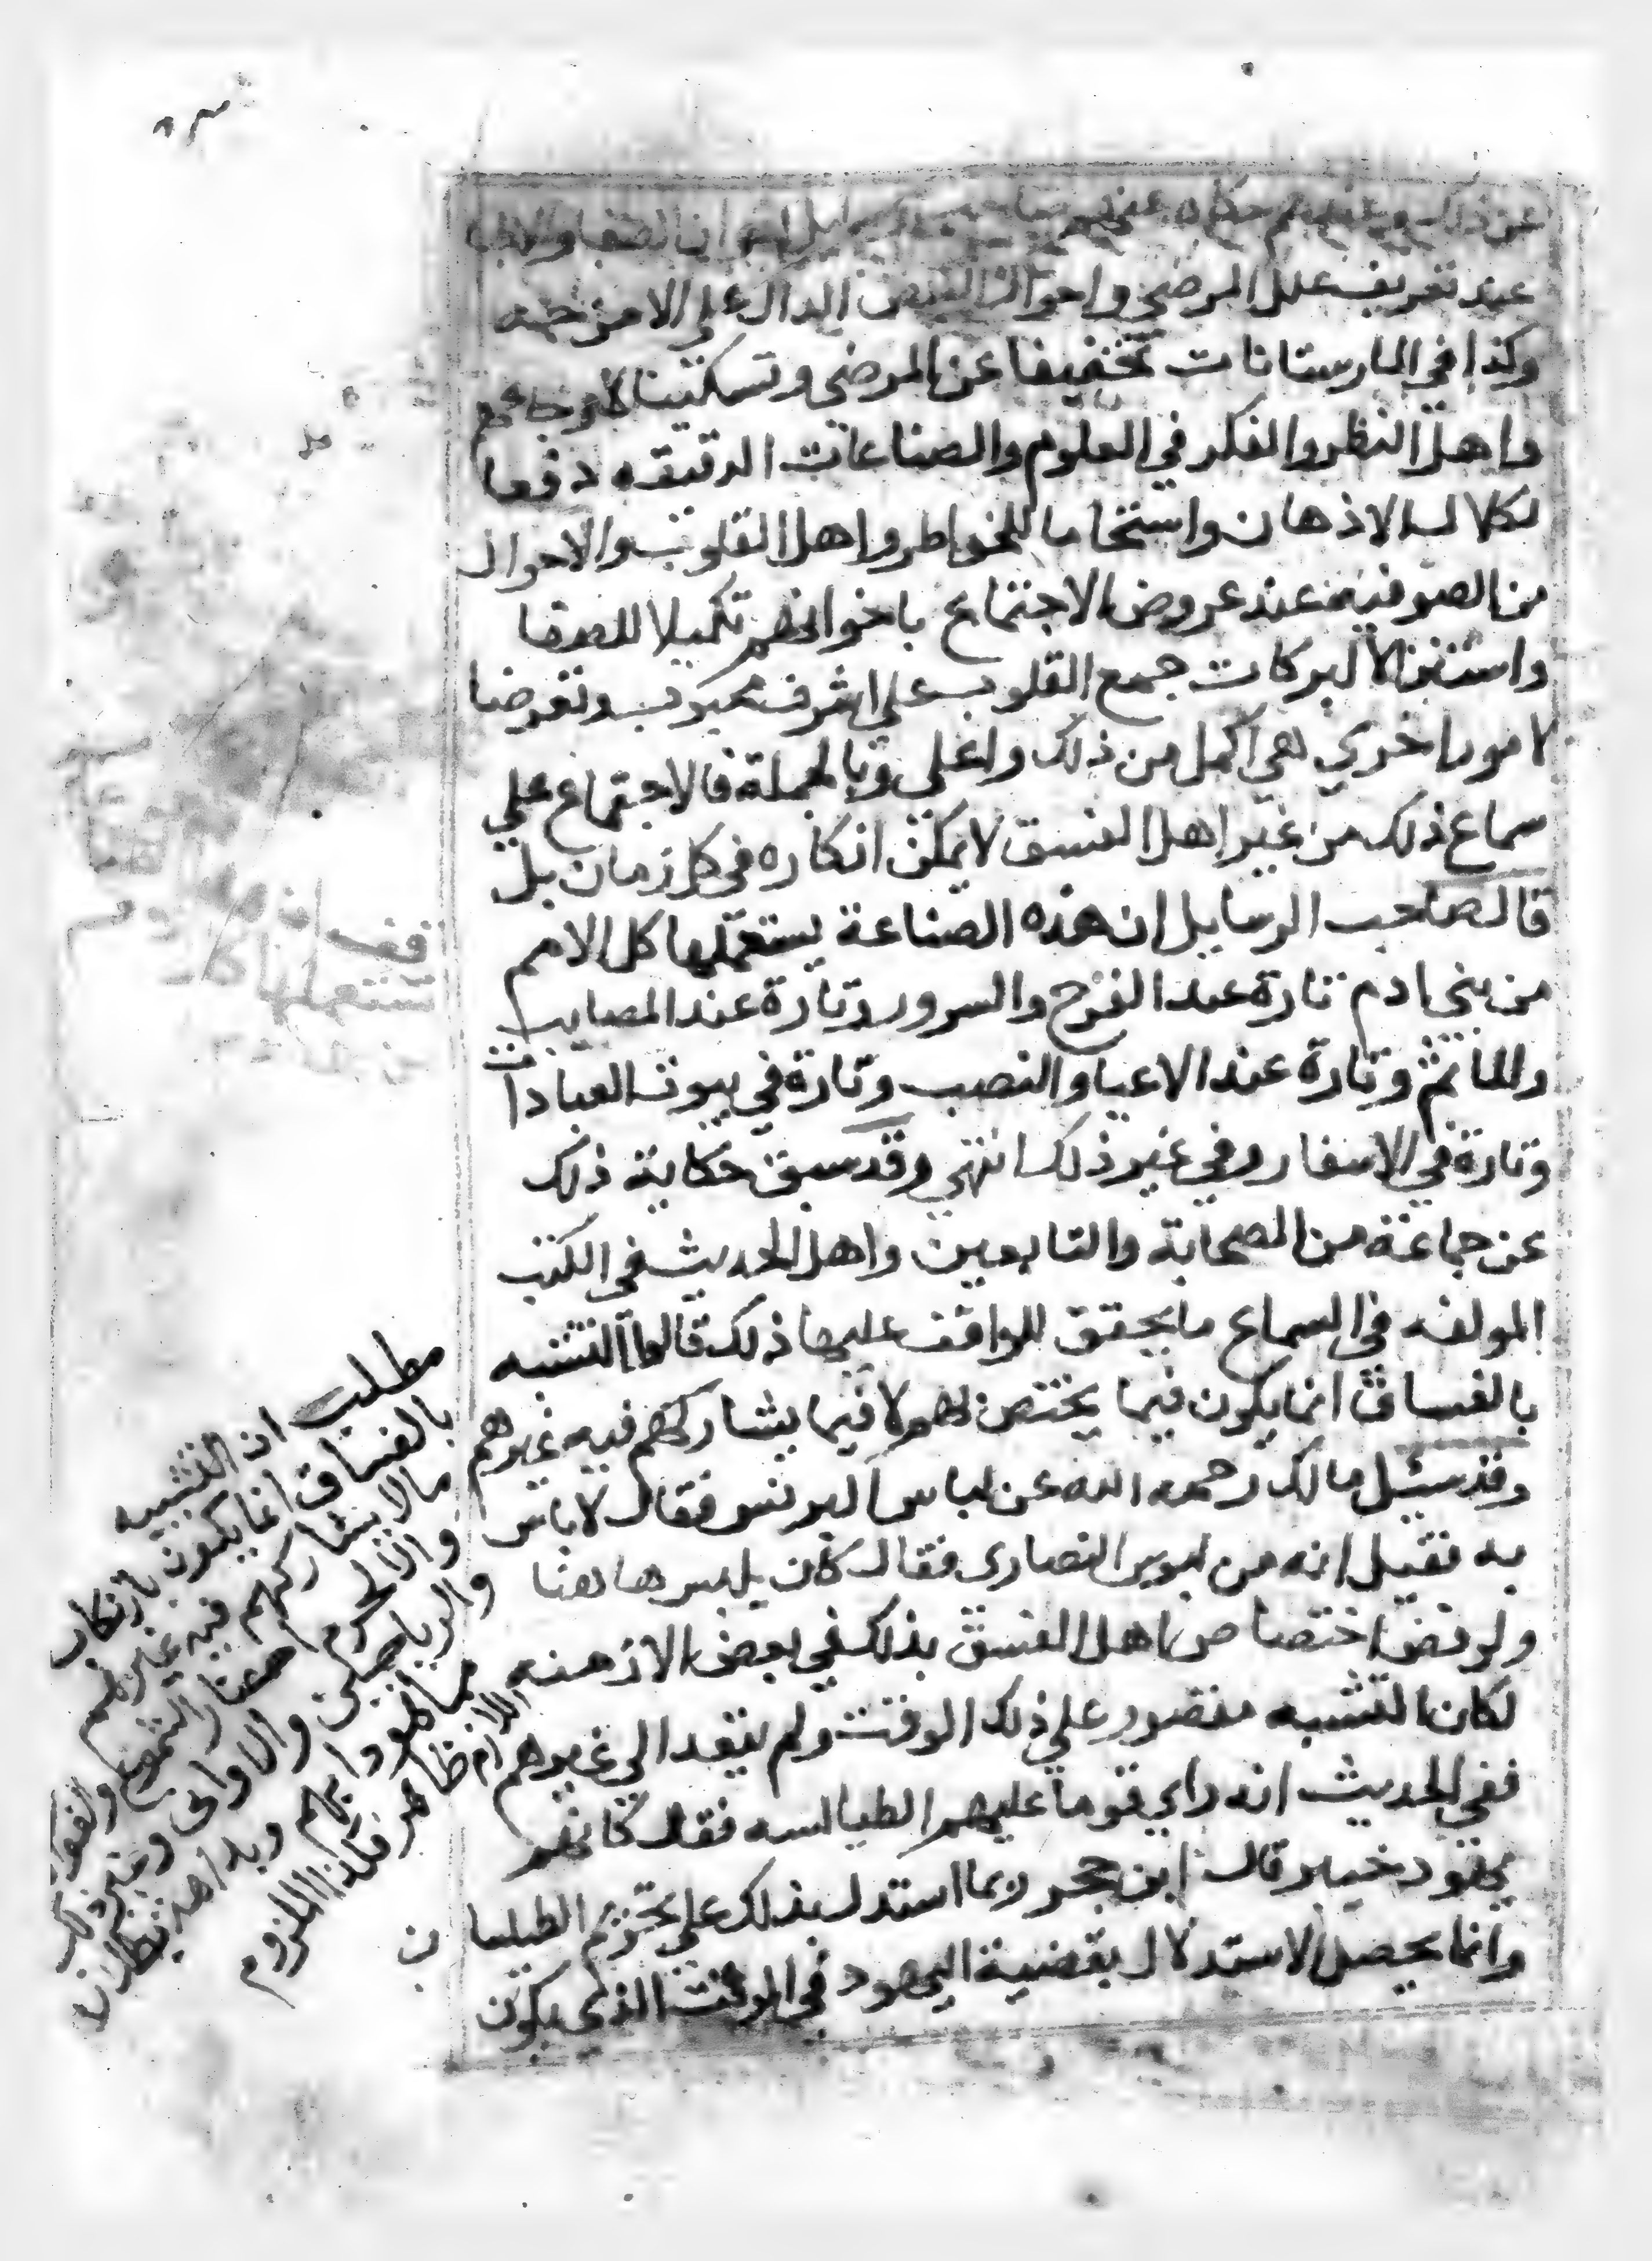 عن ذلك
عند تعريف علل المرضي واحوال النبض الدال علي الامزجه
وكذا في المارستانات تخفيفا عن المرضي وتسكينا للاوجاع مع
واهل النظر والفكر في العلوم والصناعات الدقيقه دفعا
لكلال الاذهان واستخاما للخواطر واهل القلوب والاحوال
من الصوفيه عند عروض الاجتماع باخوانهم تكميلا للصفا
واستنزالا لبركات جمع القلوب علي اشرف محبوب وتعرضا
لامور اخري هي اكمل من ذلك واعلي وبالجملة فالاجتماع علي
سماع ذلك من غير اهل الفسق لا يمكن انكاره في كل زمان بل
قال صاحب الرسايل ان هذه الصناعة يستعملها كل الامم
من بني ادم تارة عند الفرح والسرور وتارة عند المصايب
والماتم وتارة عند الاعيا والنصب وتارة في بيوت العبادات
وتارة في الاسفار وفي غير ذلك انتهي وقد سبق حكاية ذلك
عن جماعة من الصحابة والتابعين واهل الحديث في الكتب
المولفه في السماع ما يحقق للواقف عليها ذلك قالوا التشبه
بالفساق انما يكون فيما يختص لهم لا فيما يشاركهم فيه غيرهم
وقد سئل مالك رحمه الله عن لباس البرنس فقال لا باس
به فقيل انه من لبوس النصارى فقال كان يلبس هاهنا
ولو فض اختصاص اهل الفسق بذلك في بعض الازمنه
لكان التشبه مقصور علي ذلك الوقت ولم يتعد الي غيرهم
ففي الحديث انه راي قوما عليهم الطيالسه فقال كانهم
يهود خيبر قال ابن حجر وبما استدل بذلك علي تحريم الطيلسان
وانما يحصل الاستدلال بقضية اليهود في الوقت الذي يكون
تستعملها كل
مطلب ان التشبيه
بالفساق انما يكون بارتكاب
مالا يشاركهم فيه غيرهم
والا لحرم
والرياحين والاواني وغير ذلك
اللازم ظاهر فكذا الملزوم